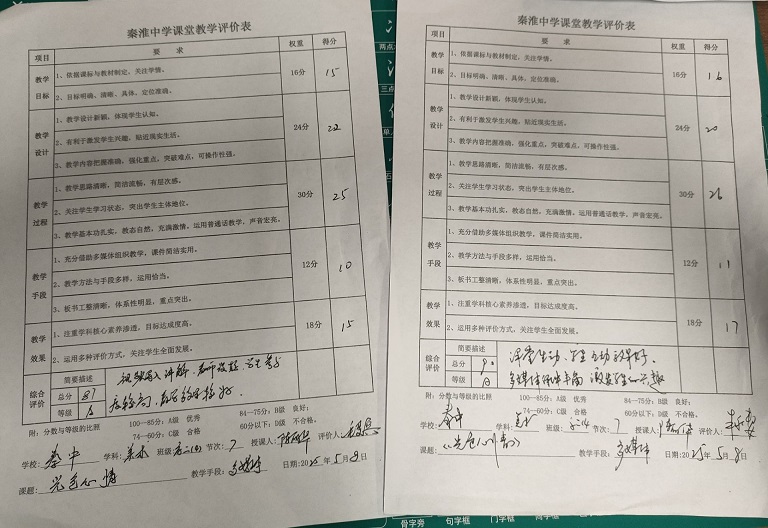 秦淮中学课堂教学评价表
项目 要 求 权重 得分
教学目标 1、依据课标与教材制定，关注学情。 16分 15
2、目标明确、清晰、具体、定位准确。
教学设计 1、教学设计新颖，体现学生认知。 24分 22
2、有利于激发学生兴趣，贴近现实生活。
3、教学内容把握准确，强化重点，突破难点，可操作性强。
教学过程 1、教学思路清晰，简洁流畅，有层次感。 30分 25
2、关注学生学习状态，突出学生主体地位。
3、教学基本功扎实，教态自然，充满激情，运用普通话教学，声音宏亮。
教学手段 1、充分借助多媒体组织教学，课件简洁实用。 12分 10
2、教学方法与手段多样，运用恰当。
3、板书工整清晰，体系性明显，重点突出。
教学效果 1、注重学科核心素养渗透，目标达成度高。 18分 15
2、运用多种评价方式，关注学生全面发展。
综合评价 简要描述
总分 87
等级 A
附：分数与等级的比照 100—85分：A级 优秀 84—75分：B级 良好：
74—60分：C级 合格 60分以下：D级 不合格。
学校：秦中 学科：美术 班级： 节次：7 授课人： 评价人：
课题：光色心情 教学手段：多媒体 日期:2025年5月8日
秦淮中学课堂教学评价表
项目 要 求 权重 得分
教学目标 1、依据课标与教材制定，关注学情。 16分 16
2、目标明确、清晰、具体、定位准确。
教学设计 1、教学设计新颖，体现学生认知。 24分 20
2、有利于激发学生兴趣，贴近现实生活。
3、教学内容把握准确，强化重点，突破难点，可操作性强。
教学过程 1、教学思路清晰，简洁流畅，有层次感。 30分 26
2、关注学生学习状态，突出学生主体地位。
3、教学基本功扎实，教态自然，充满激情，运用普通话教学，声音宏亮。
教学手段 1、充分借助多媒体组织教学，课件简洁实用。 12分 11
2、教学方法与手段多样，运用恰当。
3、板书工整清晰，体系性明显，重点突出。
教学效果 1、注重学科核心素养渗透，目标达成度高。 18分 17
2、运用多种评价方式，关注学生全面发展。
综合评价 简要描述
总分 90
等级 A
附：分数与等级的比照 100—85分：A级 优秀 84—75分：B级 良好：
74—60分：C级 合格 60分以下：D级 不合格。
学校：秦中 学科：美术 班级： 节次：7 授课人： 评价人：
课题： 教学手段：多媒体 日期:2025年5月8日
骨字旁 句字框 门字框